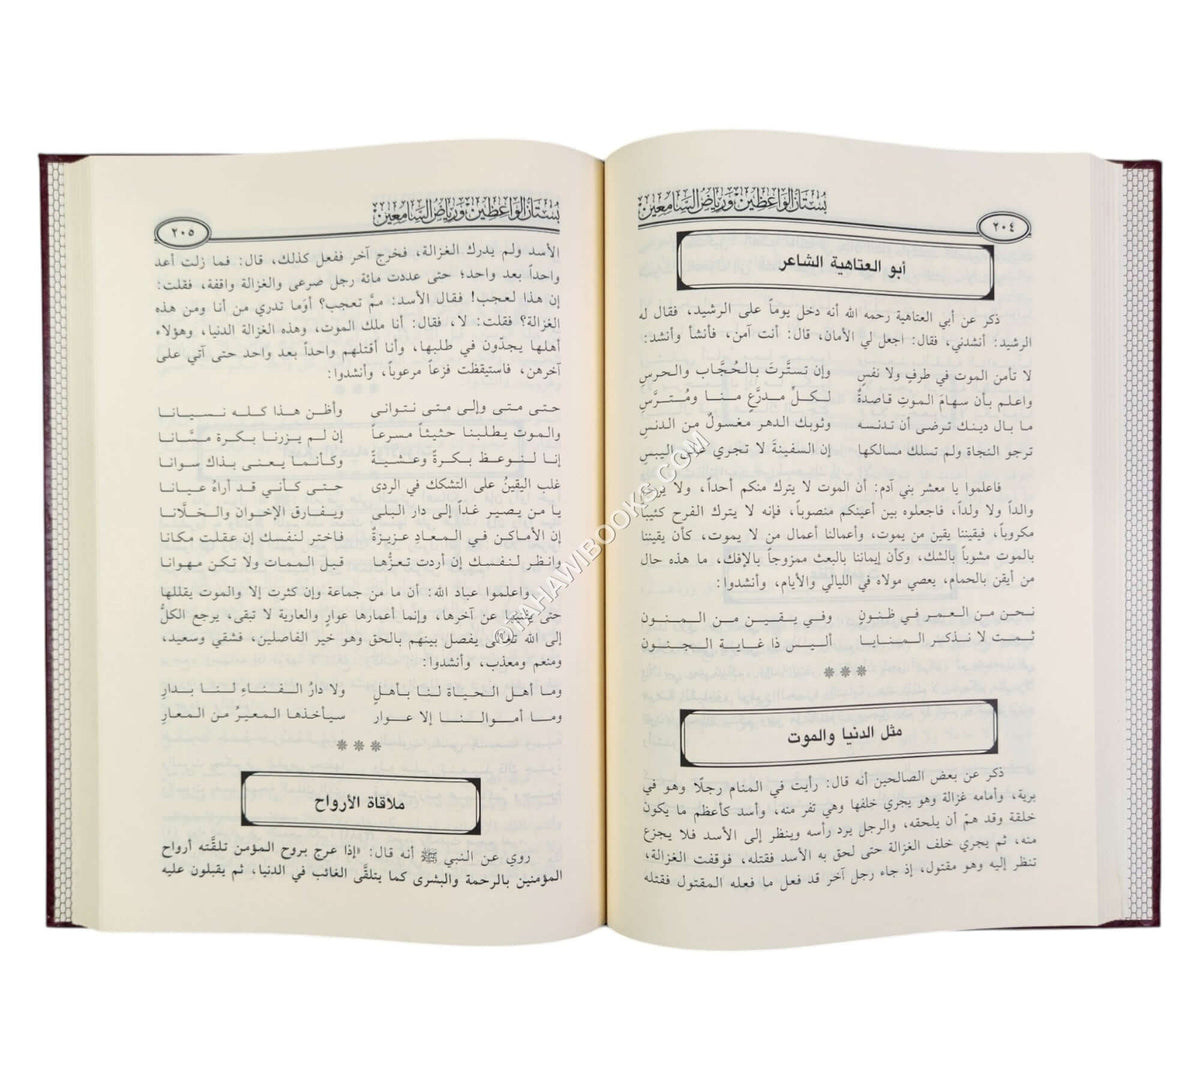 بستان الواعظين ورياض السامعين
٢٠٤
أبو العتاهية الشاعر
ذكر عن أبي العتاهية رحمه الله أنه دخل يوماً على الرشيد، فقال له
الرشيد: أنشدني، فقال: اجعل لي الأمان، قال: أنت آمن، فأنشأ وأنشد:
لا تأمن الموت في طرفٍ ولا نفسٍ وإن تستَّرتَ بالحُجَّاب والحرسِ
واعلم بأن سهامَ الموتِ قاصدةٌ لكلِّ مدرَّعٍ منا ومُتَرَّسِ
ما بال دينك ترضى أن تدنسه وثوبك الدهر مغسولٌ من الدنسِ
ترجو النجاة ولم تسلك مسالكها إن السفينةَ لا تجري على اليبسِ
فاعلموا يا معشر بني آدم: أن الموت لا يترك منكم أحداً، ولا يرزق
والداً ولا ولداً، فاجعلوه بين أعينكم منصوباً، فإنه لا يترك الفرح كئيباً
مكروباً، فيقيننا يقين من يموت، وأعمالنا أعمال من لا يموت، كأن يقيننا
بالموت مشوباً بالشك، وكأن إيماننا بالبعث ممزوجاً بالإفك، ما هذه حال
من أيقن بالحمام، يعصي مولاه في الليالي والأيام، وأنشدوا:
نحن من العمر في ظنونٍ وفي يقين من المنون
ثمت لا نذكر المنايا أليس ذا غاية الجنون
***
مثل الدنيا والموت
ذكر عن بعض الصالحين أنه قال: رأيت في المنام رجلًا وهو في
برية، وأمامه غزالة وهو يجري خلفها وهي تفر منه، وأسد كأعظم ما يكون
خلقة وقد همّ أن يلحقه، والرجل يرد رأسه وينظر إلى الأسد فلا يجزع
منه، ثم يجري خلف الغزالة حتى لحق به الأسد فقتله، فوقفت الغزالة،
تنظر إليه وهو مقتول، إذ جاء رجل آخر قد فعل ما فعله المقتول فقتله
بستان الواعظين ورياض السامعين
٢٠٥
الأسد ولم يدرك الغزالة، فخرج آخر ففعل كذلك، قال: فما زلت أعد
واحداً بعد واحد؛ حتى عددت مائة رجل صرعى والغزالة واقفة، فقلت:
إن هذا لعجب! فقال الأسد: ممَّ تعجب؟ أوَما تدري من أنا ومن هذه
الغزالة؟ فقلت: لا، فقال: أنا ملك الموت، وهذه الغزالة الدنيا، وهؤلاء
أهلها يجدّون في طلبها، وأنا أقتلهم واحداً بعد واحد حتى آتي على
آخرهن، فاستيقظت فزعاً مرعوباً، وأنشدوا:
حتى متى وإلى متى نتوانى وأظن هذا كله نسيانا
والموت يطلبنا حثيثاً مسرعاً إن لم يزرنا بكرة مسَّانا
إنا لنوعظ بكرةً وعشيةً وكأنما يعنى بذاك سوانا
غلب اليقينُ على التشكك في الردى حتى كأني قد أراهُ عيانا
يا من يصير غداً إلى دار البلى ويفارق الإخوان والخلَّانا
إن الأماكن في المعادِ عزيزةٌ فاختر لنفسك إن عقلت مكانا
وانظر لنفسك إن أردت تعزُّها قبل الممات ولا تكن مهوانا
واعلموا عباد الله: أن ما من جماعة وإن كثرت إلا والموت يقللها
حتى يفنيها عن آخرها، وإنما أعمارها عوارٍ والعارية لا تبقى، يرجع الكلُّ
إلى الله تعالى يفصل بينهم بالحق وهو خير الفاصلين، فشقي وسعيد،
ومنعم ومعذب، وأنشدوا:
وما أهل الحياة لنا بأهلٍ ولا دارُ الفناءِ لنا بدارِ
وما أموالنا إلا عوار سيأخذها المعير من المعارِ
***
ملاقاة الأرواح
روي عن النبي ﷺ أنه قال: «إذا عرج بروح المؤمن تلقَّته أرواح
المؤمنين بالرحمة والبشرى كما يتلقَّى الغائب في الدنيا، ثم يقبلون عليه
TAHAWIBOOKS.COM